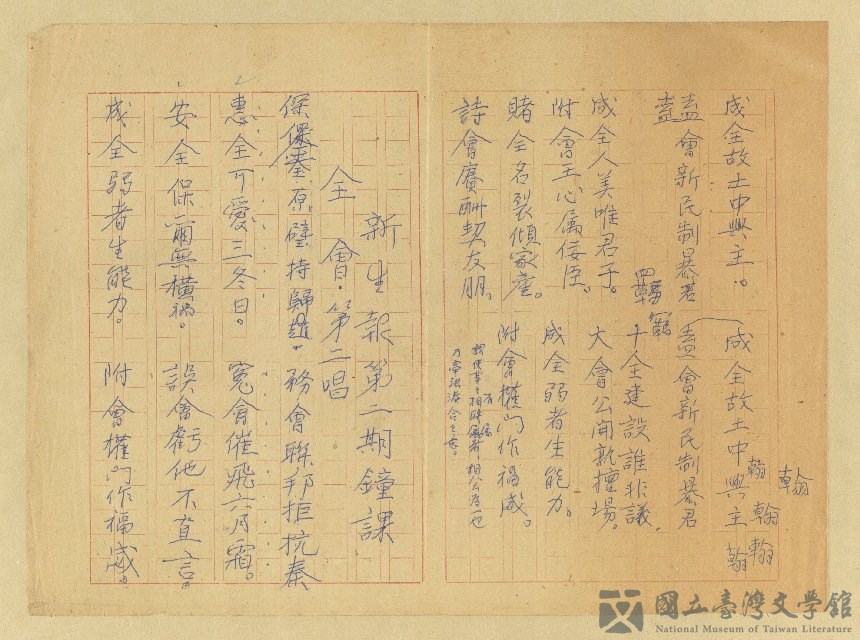 成全故土中興主。 成全故土中興主 翰
盍會新民制暴君 盍會新民制暴君
成全人美唯君子。 十全建設誰非議。
附會王心屬佞臣。 大會公開孰擅場。
賭全名裂傾家產。 成全弱者生能力。
詩會賡酬契友朋。 附會權門作福威。
新生報第二期鐘課
全會・第二唱
保全原璧持歸趙。 務會聯邦拒抗秦
惠全可愛三冬日。 冤會催飛六月霜。
安全保爾無橫禍。 誤會虧他不直言。
成全弱者生能力。 附會權門作福威。
國立臺灣文學館
National Museum of Taiwan Literature